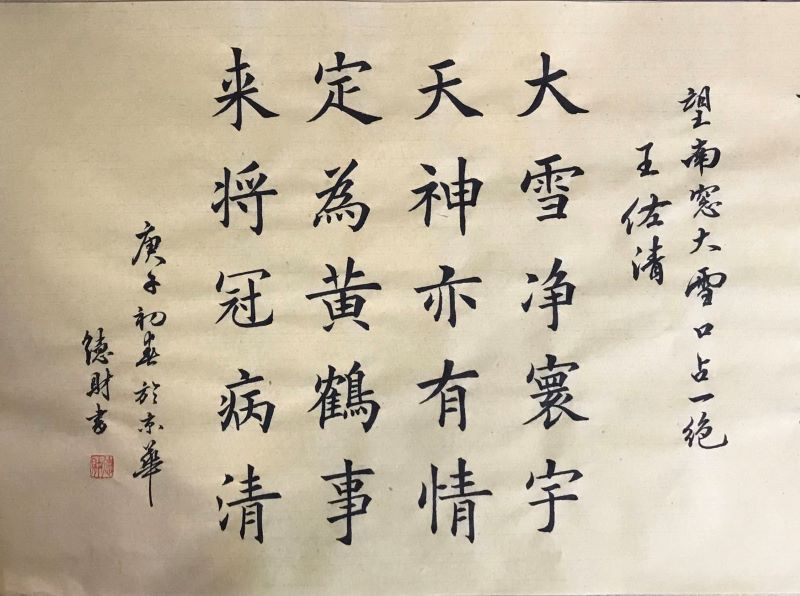 望南窓大雪口占一绝
王佐清
大雪净寰宇
天神亦有情
定為黄鶴事
来将冠病清
庚子初春於京華
德財書